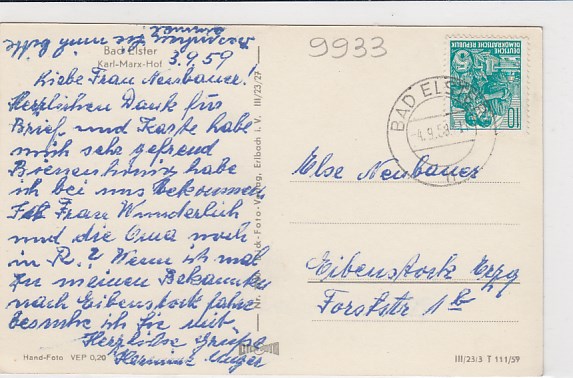 Bad Elster
Karl-Marx-Hof
3.9.59
Liebe Frau Neubauer!
Herzlichen Dank für
Brief und Karte habe
mich sehr gefreut
Bienenhonig habe
ich bei uns bekommen
Ist Frau Wunderlich
und die Oma noch
in R.? Wenn ich mal
zu meinen Bekannten
nach Eibenstock fahre
besuche ich Sie mit
Herzliche Grüße
Hermine Unger
Hand-Foto VEP 0,20
Erlbach i. V. III/23/27
9933
DEUTSCHE
DEMOKRATISCHE REPUBLIK
10
BAD ELSTER
Else Neubauer
Eibenstock Erzg
Forststr 1b
III/23/3 T 111/59